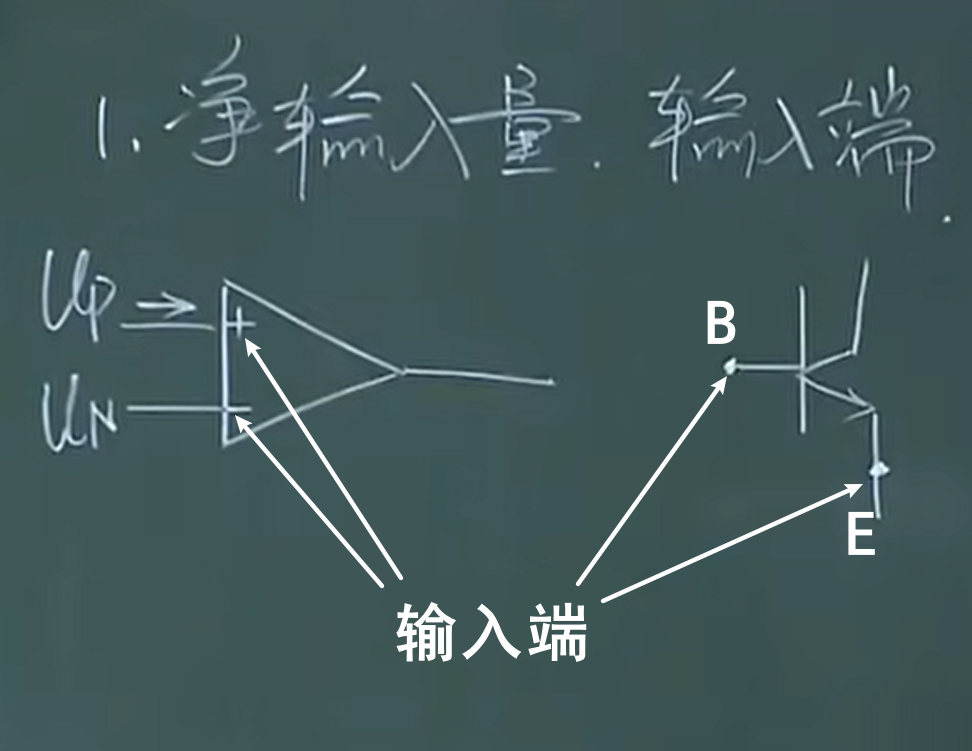 1. 净输入量. 输入端.
UP
+
UN
-
B
E
输入端